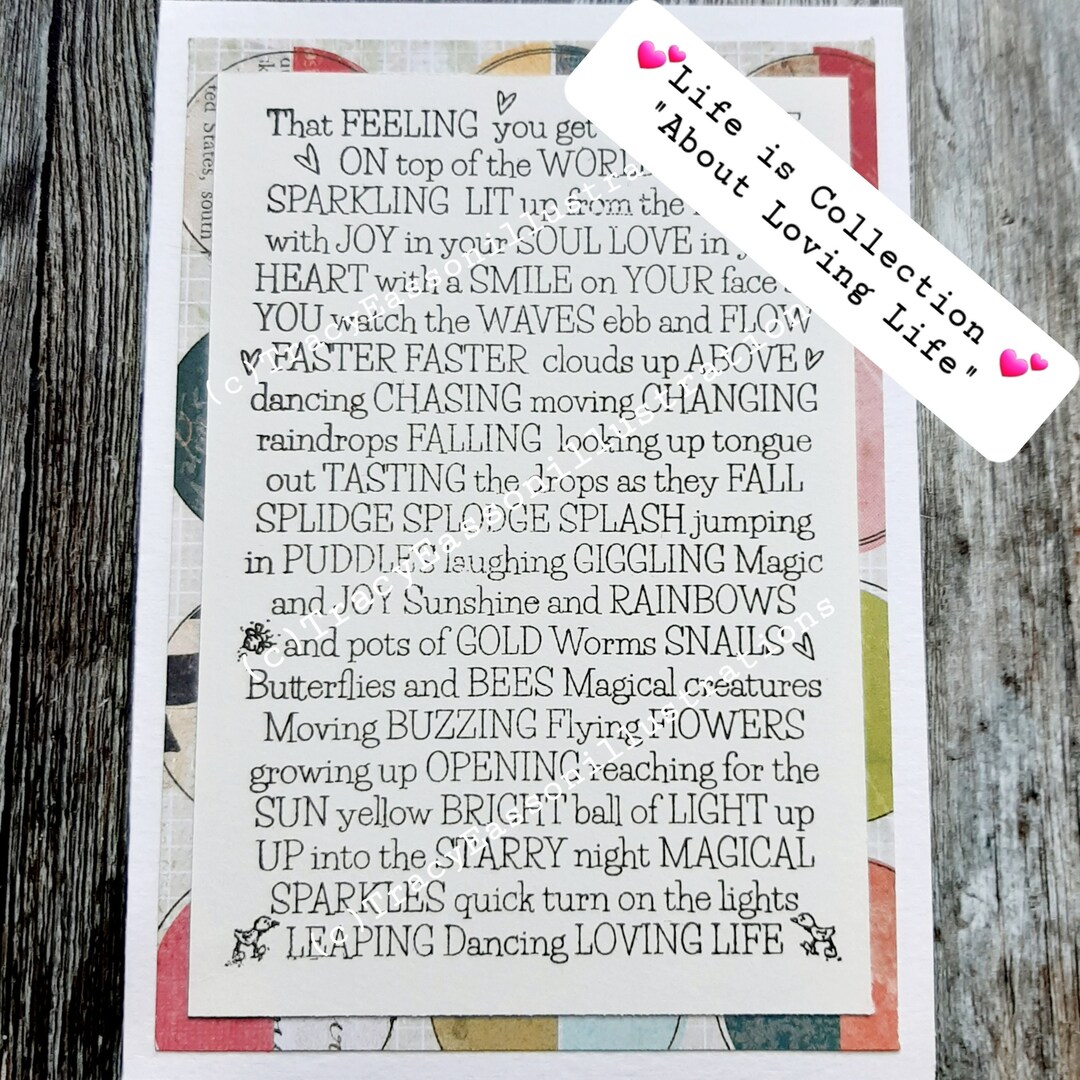 Life is Collection
"About Loving Life"
That FEELING you get
ON top of the WORLD
SPARKLING LIT up from the
with JOY in your SOUL LOVE in
HEART with a SMILE on YOUR face
YOU watch the WAVES ebb and FLOW
FASTER FASTER clouds up ABOVE
dancing CHASING moving CHANGING
raindrops FALLING looking up tongue
out TASTING the drops as they FALL
SPLIDGE SPLODGE SPLASH jumping
in PUDDLES laughing GIGGLING Magic
and JOY Sunshine and RAINBOWS
and pots of GOLD Worms SNAILS
Butterflies and BEES Magical creatures
Moving BUZZING Flying FlOWERS
growing up OPENING reaching for the
SUN yellow BRIGHT ball of LIGHT up
UP into the STARRY night MAGICAL
SPARKLES quick turn on the lights
LEAPING Dancing LOVING LIFE
(c)TracyEassonillustrations
(c)TracyEassonillustrations
(c)TracyEassonillustrations
ted States, south